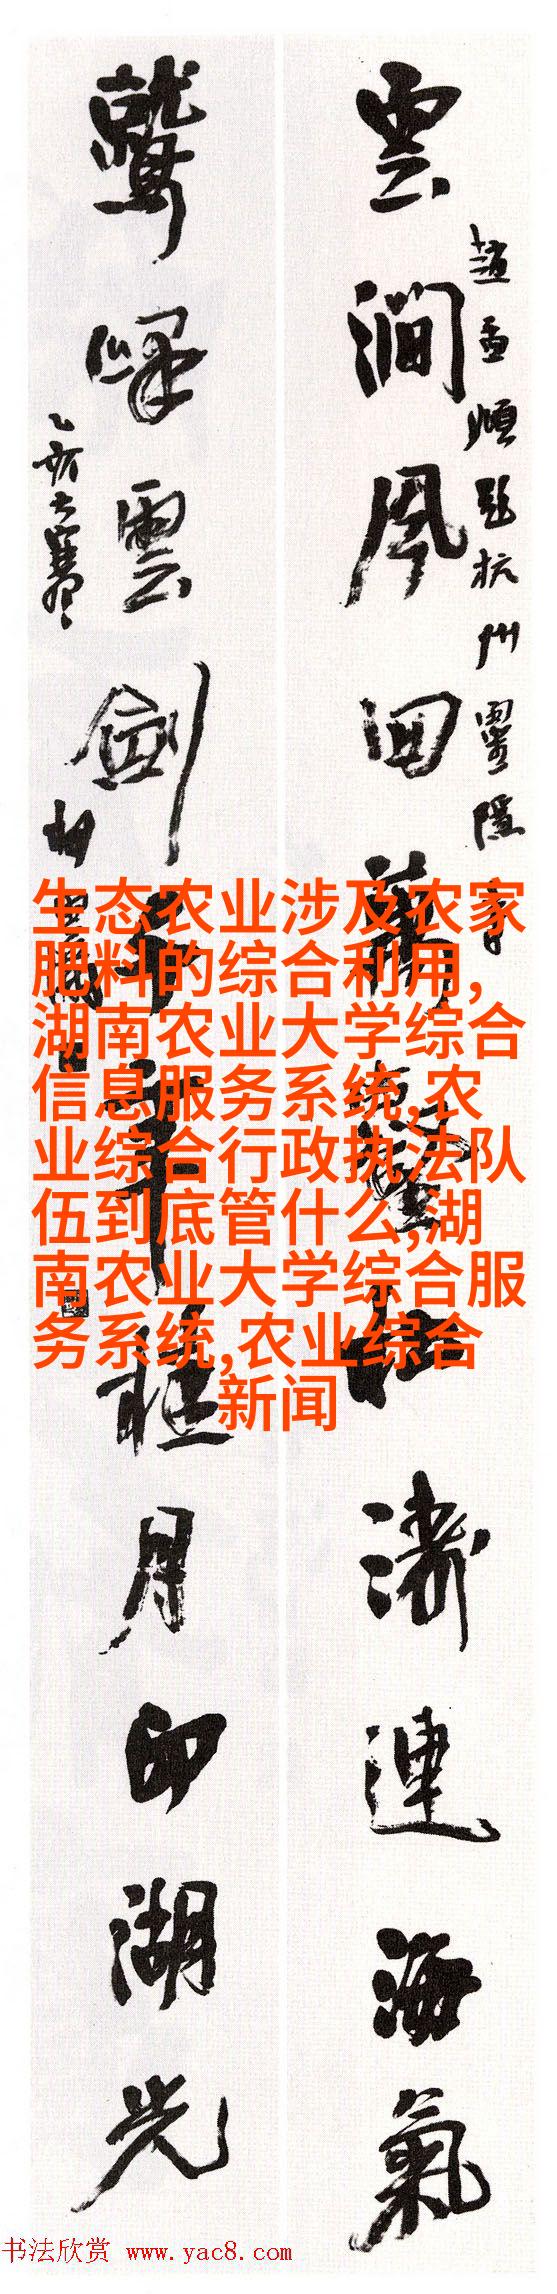 趙孟頫題杭州靈隱寺
雲澗風回萬壑松濤連海氣
鷲峰雲劍千岩桂月印湖光
乙亥大寒
生态农业涉及农家
肥料的综合利用,
湖南农业大学综合
信息服务系统,农
业综合行政执法队
伍到底管什么,湖
南农业大学综合服
务系统,农业综合
新闻
书法欣赏 www.yac8.com